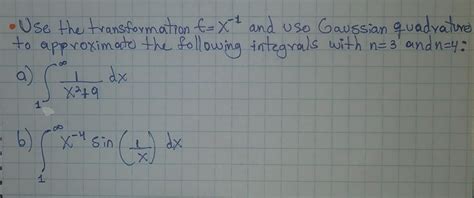 • Use the transformation t=x⁻¹ and use Gaussian quadrature
to approximate the following integrals with n=3 and n=4:
a) ∫₁^∞ 1/(x²+9) dx
b) ∫₁^∞ x⁻⁴ sin(1/x) dx